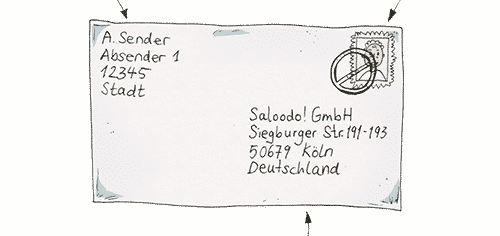 A. Sender
Absender 1
12345
Stadt
Saloodo! GmbH
Siegburger Str. 191-193
50679 Köln
Deutschland